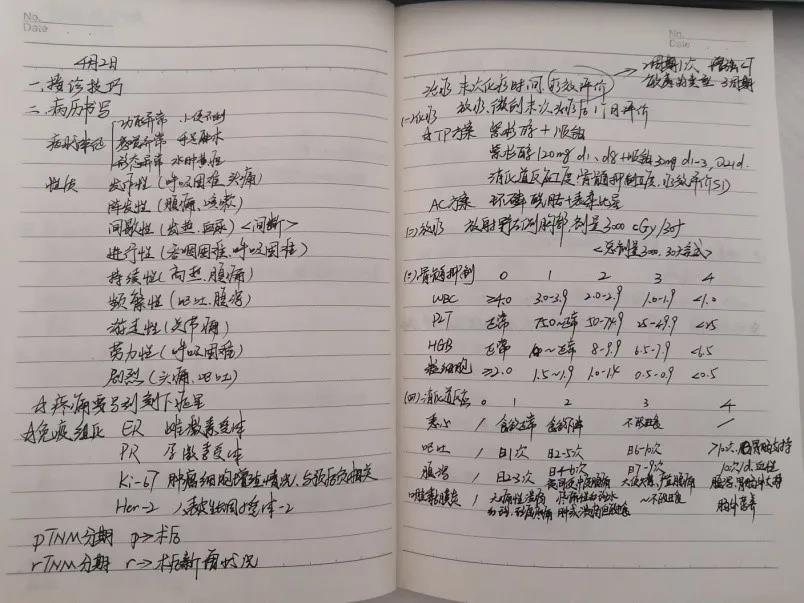 No.
Date
4月2日
一.接诊技巧
二.病历书写
功能异常 小便不利
症状描述 感觉异常 手足麻木
形态异常 水肿黄疸
性质 发作性(呼吸困难、头痛)
阵发性(腹痛、咳嗽)
间歇性(发热、血尿)<间断>
进行性(吞咽困难、呼吸困难)
持续性(高热、腹痛)
频繁性(呕吐、腹泻)
游走性(关节痛)
劳力性(呼吸困难)
剧烈(头痛、呕吐)
疼痛要
免疫组化 ER 雌激素受体
PR 孕激素受体
Ki-67 肿瘤细胞增殖情况,与预后负相关
Her-2 人表皮生长因子受体-2
pTNM分期 p→术后
rTNM分期 r→术后新
No.
Date
2周期1次 增强CT
化疗 末次化疗时间、疗效评价 3周期
放疗、 末次放疗后1个月评价
(一)化疗
TP方案 紫杉醇+顺铂
紫杉醇120mg d1、d8+顺铂30mg d1-3, Q21d.
消化道反应I度、骨髓抑制I度、疗效评价SD
AC方案 环磷酰胺+
(二)放疗 放射野 胸部,剂量3000cGy/30f
<总剂量3000, 30次
(三)骨髓抑制 0 1 2 3 4
WBC ≥4.0 3.0-3.9 2.0-2.9 1.0-1.9 <1.0
PLT 正常 75.0~正常 50-74.9 25-49.9 <25
HGB 正常 10~正常 8-9.9 6.5-7.9 <6.5
粒细胞 ≥2.0 1.5~1.9 1.0-1.4 0.5-0.9 <0.5
(四)消化道反应 0 1 2 3 4
恶心 / 食欲正常 食欲下降 不能进食 /
呕吐 / 日1次 日2-5次 日6-10次 >10次、胃肠外支持
腹泻 / 日2-3次 日4-6次 日7-9次 10次/d、血性
腹泻、胃肠外支持
口腔黏膜炎 / 无痛性溃疡 ~不能进食 肠外营养